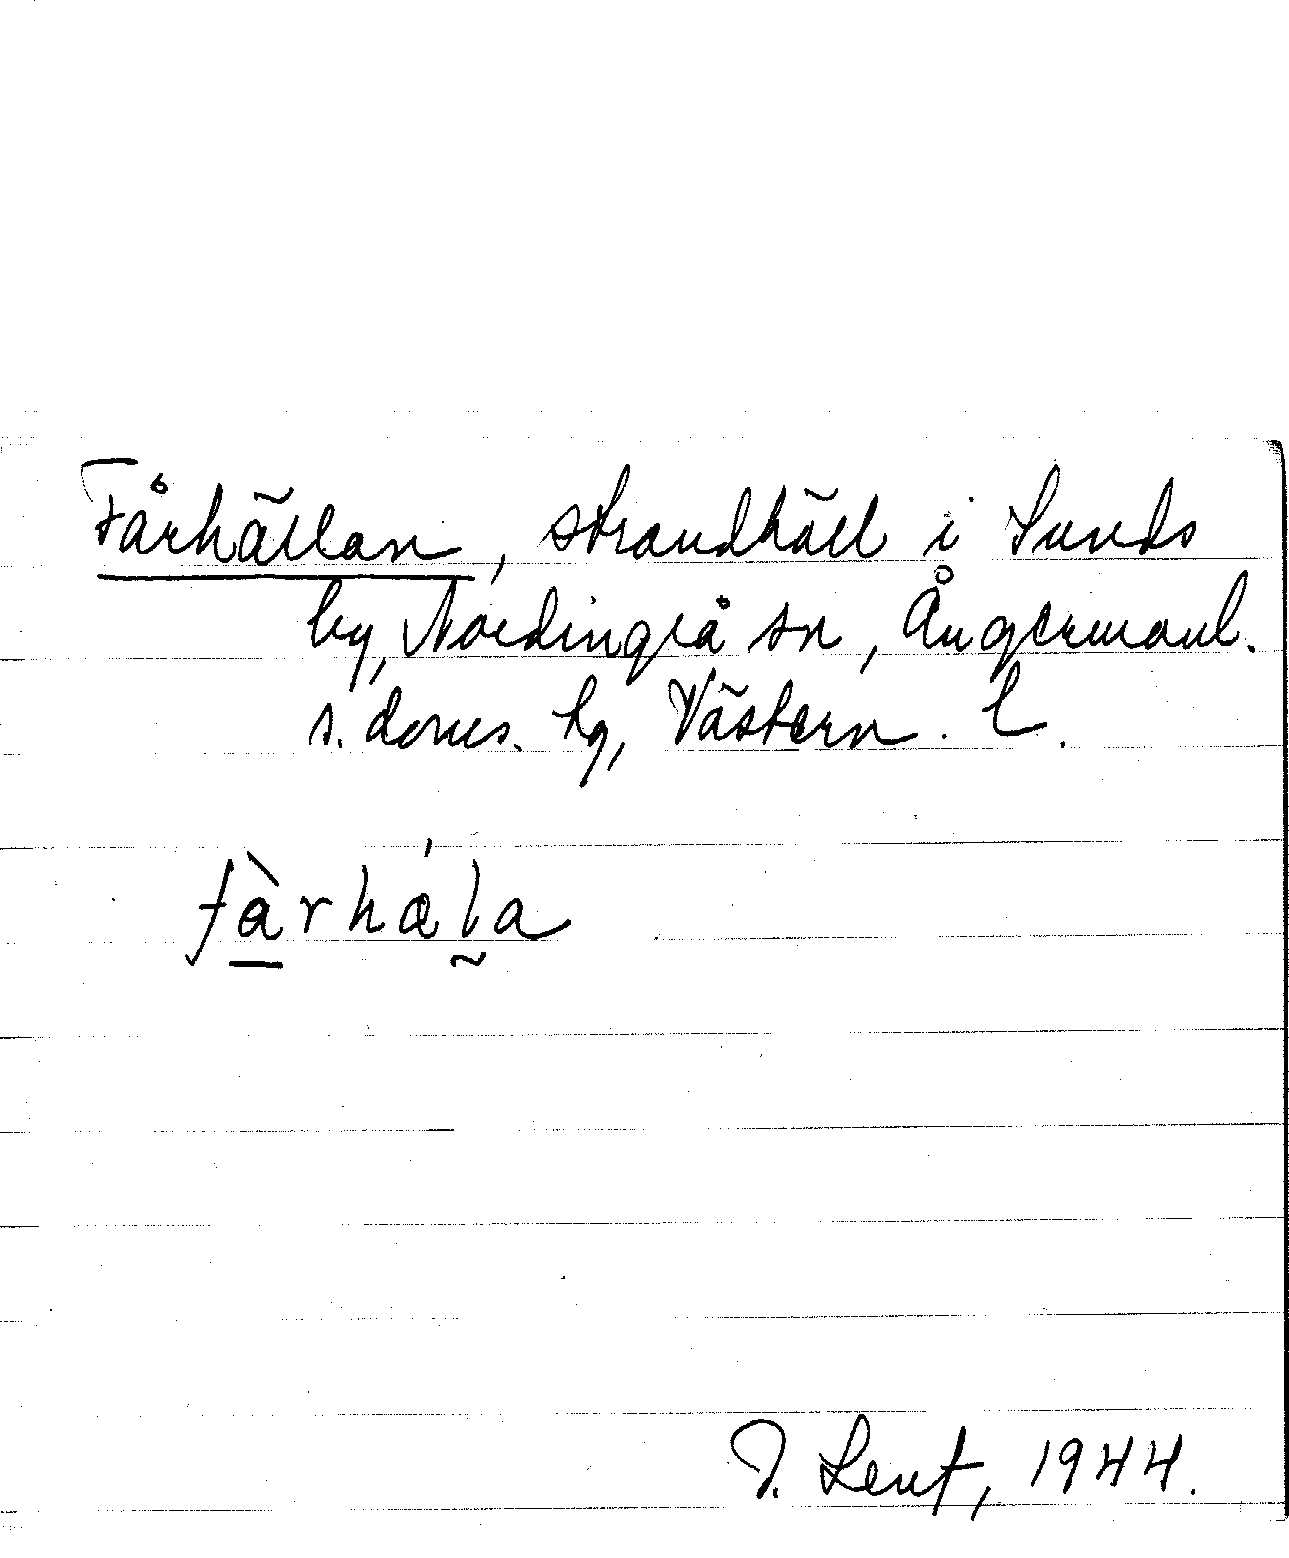 Fårhällan, strandhäll i Sunds
by, Nordingrå sn, Ångermanl.
s. doms. hg, Västern. l.
fàrhála
J. Lent, 1944.